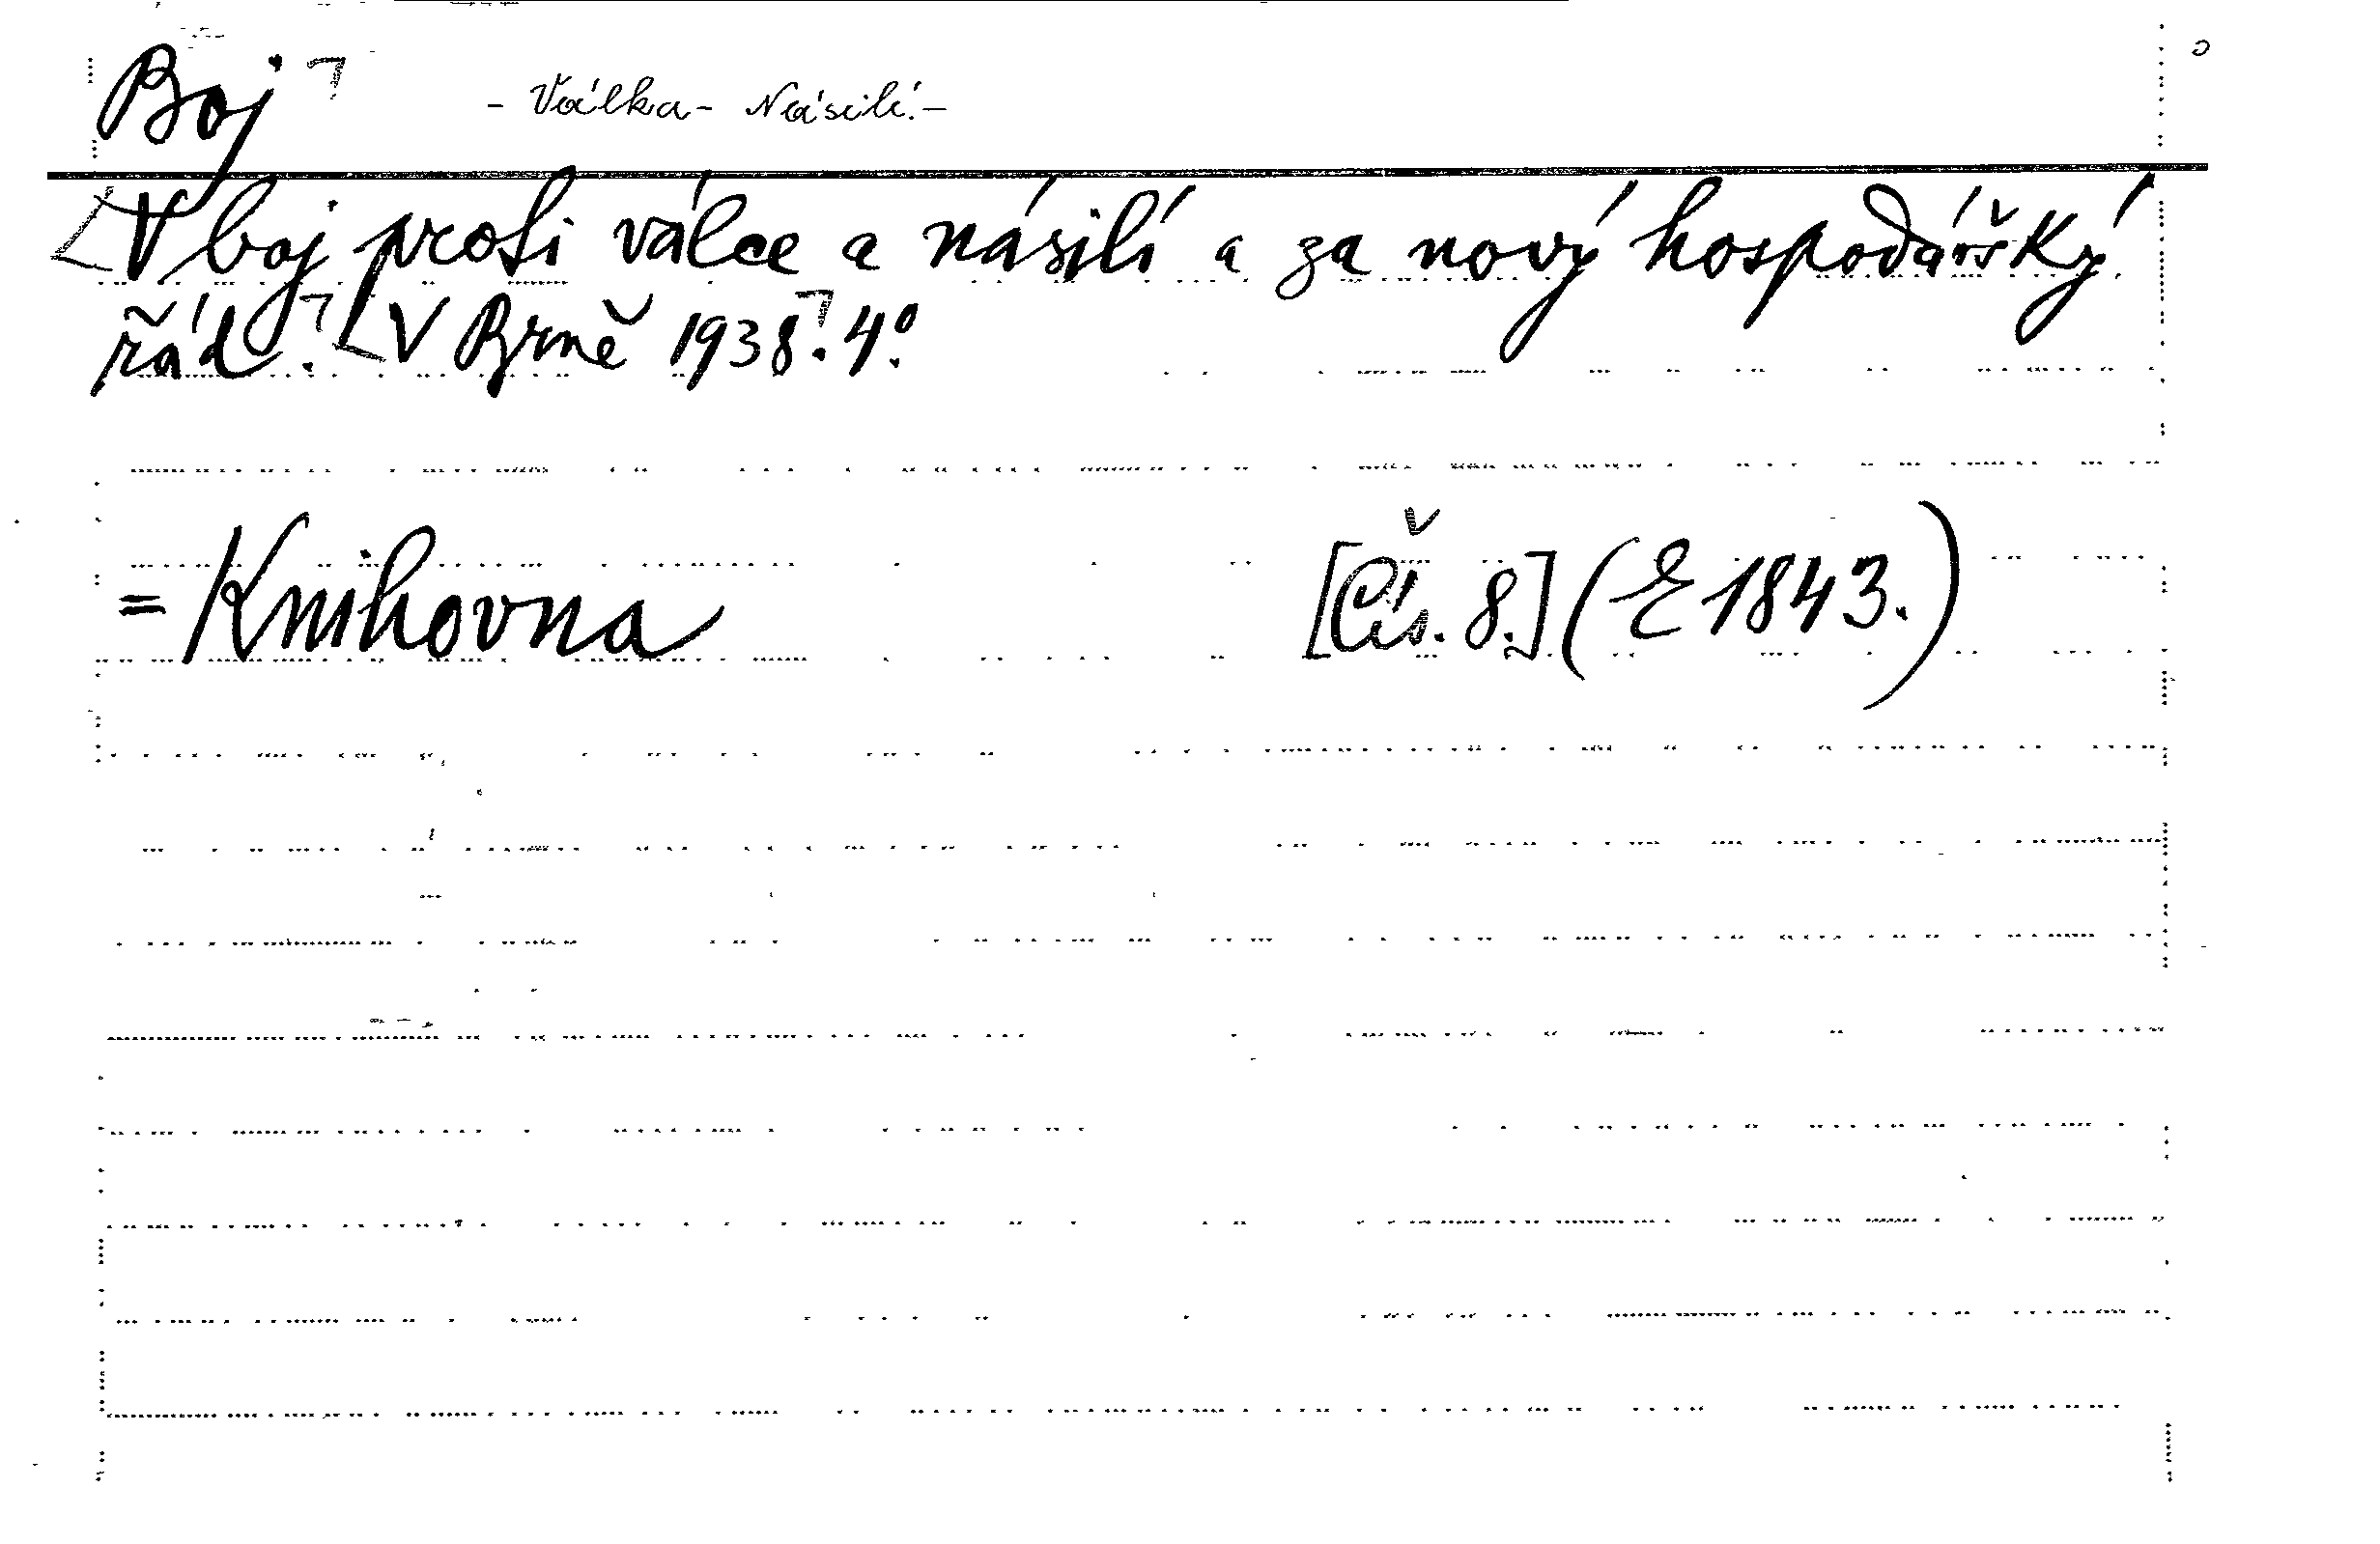 Boj - Válka - Násilí. -
V boj proti válce a násilí a za nový hospodářský
řád. V Brně 1938. 4°.
= Knihovna [Čís. 8.] (E 1843.)